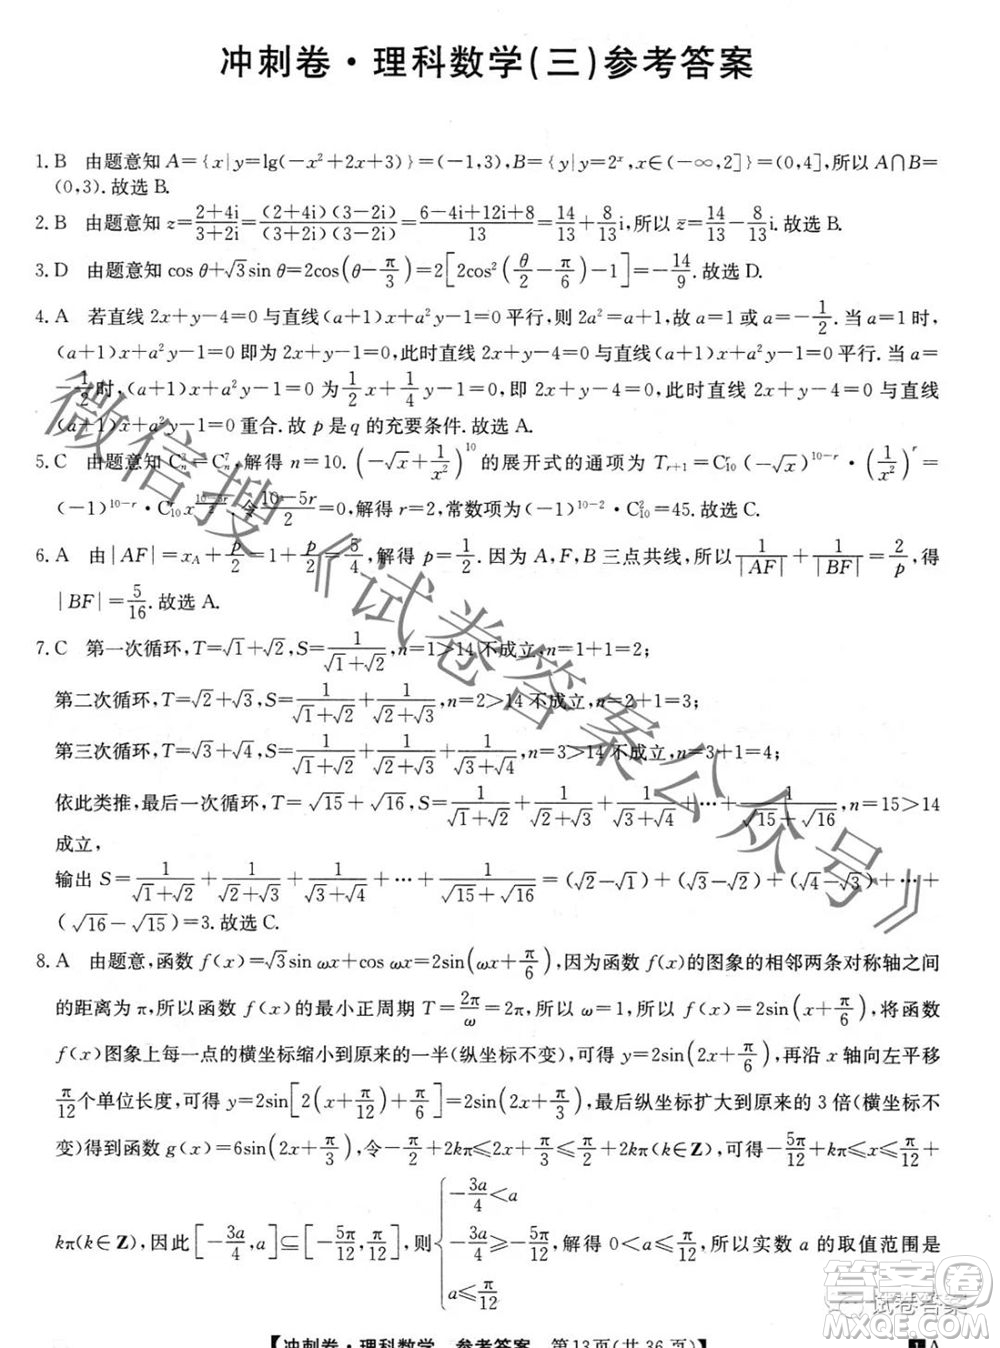 冲刺卷·理科数学(三)参考答案
1.B 由题意知 A={x|y=lg(-x²+2x+3)}=(-1,3),B={y|y=2ˣ,x∈(-∞,2]}=(0,4],所以 A∩B=
(0,3).故选 B.
2.B 由题意知 z=(2+4i)/(3+2i)=(2+4i)(3-2i)/(3+2i)(3-2i)=(6-4i+12i+8)/13=14/13+8/13i,所以 z̄=14/13-8/13i.故选 B.
3.D 由题意知 cos θ+√3sin θ=2cos(θ-π/3)=2[2cos²(θ/2-π/6)-1]=-14/9.故选 D.
4.A 若直线 2x+y-4=0 与直线(a+1)x+a²y-1=0 平行,则 2a²=a+1,故 a=1 或 a=-1/2.当 a=1 时,
(a+1)x+a²y-1=0 即为 2x+y-1=0,此时直线 2x+y-4=0 与直线(a+1)x+a²y-1=0 平行.当 a=
-1/2时,(a+1)x+a²y-1=0 为 1/2x+1/4y-1=0,即 2x+y-4=0,此时直线 2x+y-4=0 与直线
(a+1)x+a²y-1=0 重合.故 p 是 q 的充要条件.故选 A.
5.C 由题意知 Cₙ³=Cₙ⁷,解得 n=10.(-√x+1/x²)¹⁰的展开式的通项为 Tᵣ₊₁=C₁₀ʳ(-√x)¹⁰⁻ʳ·(1/x²)ʳ=
(-1)¹⁰⁻ʳ·C₁₀ʳx^((10-5r)/2).令(10-5r)/2=0,解得 r=2,常数项为(-1)¹⁰⁻²·C₁₀²=45.故选 C.
6.A 由|AF|=x_A+p/2=1+p/2=5/4,解得 p=1/2.因为 A,F,B 三点共线,所以 1/|AF|+1/|BF|=2/p,得
|BF|=5/16.故选 A.
7.C 第一次循环,T=√1+√2,S=1/(√1+√2),n=1>14 不成立,n=1+1=2;
第二次循环,T=√2+√3,S=1/(√1+√2)+1/(√2+√3),n=2>14 不成立,n=2+1=3;
第三次循环,T=√3+√4,S=1/(√1+√2)+1/(√2+√3)+1/(√3+√4),n=3>14 不成立,n=3+1=4;
依此类推,最后一次循环,T=√15+√16,S=1/(√1+√2)+1/(√2+√3)+1/(√3+√4)+…+1/(√15+√16),n=15>14
成立,
输出 S=1/(√1+√2)+1/(√2+√3)+1/(√3+√4)+…+1/(√15+√16)=(√2-√1)+(√3-√2)+(√4-√3)+…+
(√16-√15)=3.故选 C.
8.A 由题意,函数 f(x)=√3sin ωx+cos ωx=2sin(ωx+π/6),因为函数 f(x)的图象的相邻两条对称轴之间
的距离为π,所以函数 f(x)的最小正周期 T=2π/ω=2π,所以 ω=1,所以 f(x)=2sin(x+π/6),将函数
f(x)图象上每一点的横坐标缩小到原来的一半(纵坐标不变),可得 y=2sin(2x+π/6),再沿 x 轴向左平移
π/12个单位长度,可得 y=2sin[2(x+π/12)+π/6]=2sin(2x+π/3),再纵坐标扩大到原来的 3 倍(横坐标不
变)得到函数 g(x)=6sin(2x+π/3),令-π/2+2kπ≤2x+π/3≤π/2+2kπ(k∈Z),可得-5π/12+kπ≤x≤π/12+
kπ(k∈Z),因此[-3a/4,a]⊆[-5π/12,π/12],则{-3a/4<a -3a/4≥-5π/12, a≤π/12 解得 0<a≤π/12,所以实数 a 的取值范围是
【冲刺卷·理科数学 参考答案 第13页(共36页)】 1A
微信搜《试卷答案公众号》
答案卷
试卷答案
MXQE.COM